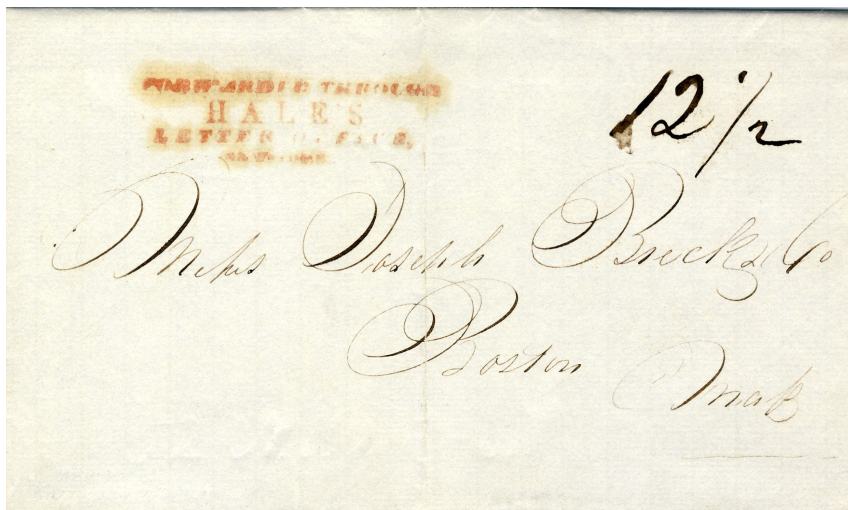 FORWARDED THROUGH
HALE'S
LETTER OFFICE,
12 1/2
Messrs Joseph Breck & Co
Boston
Mass